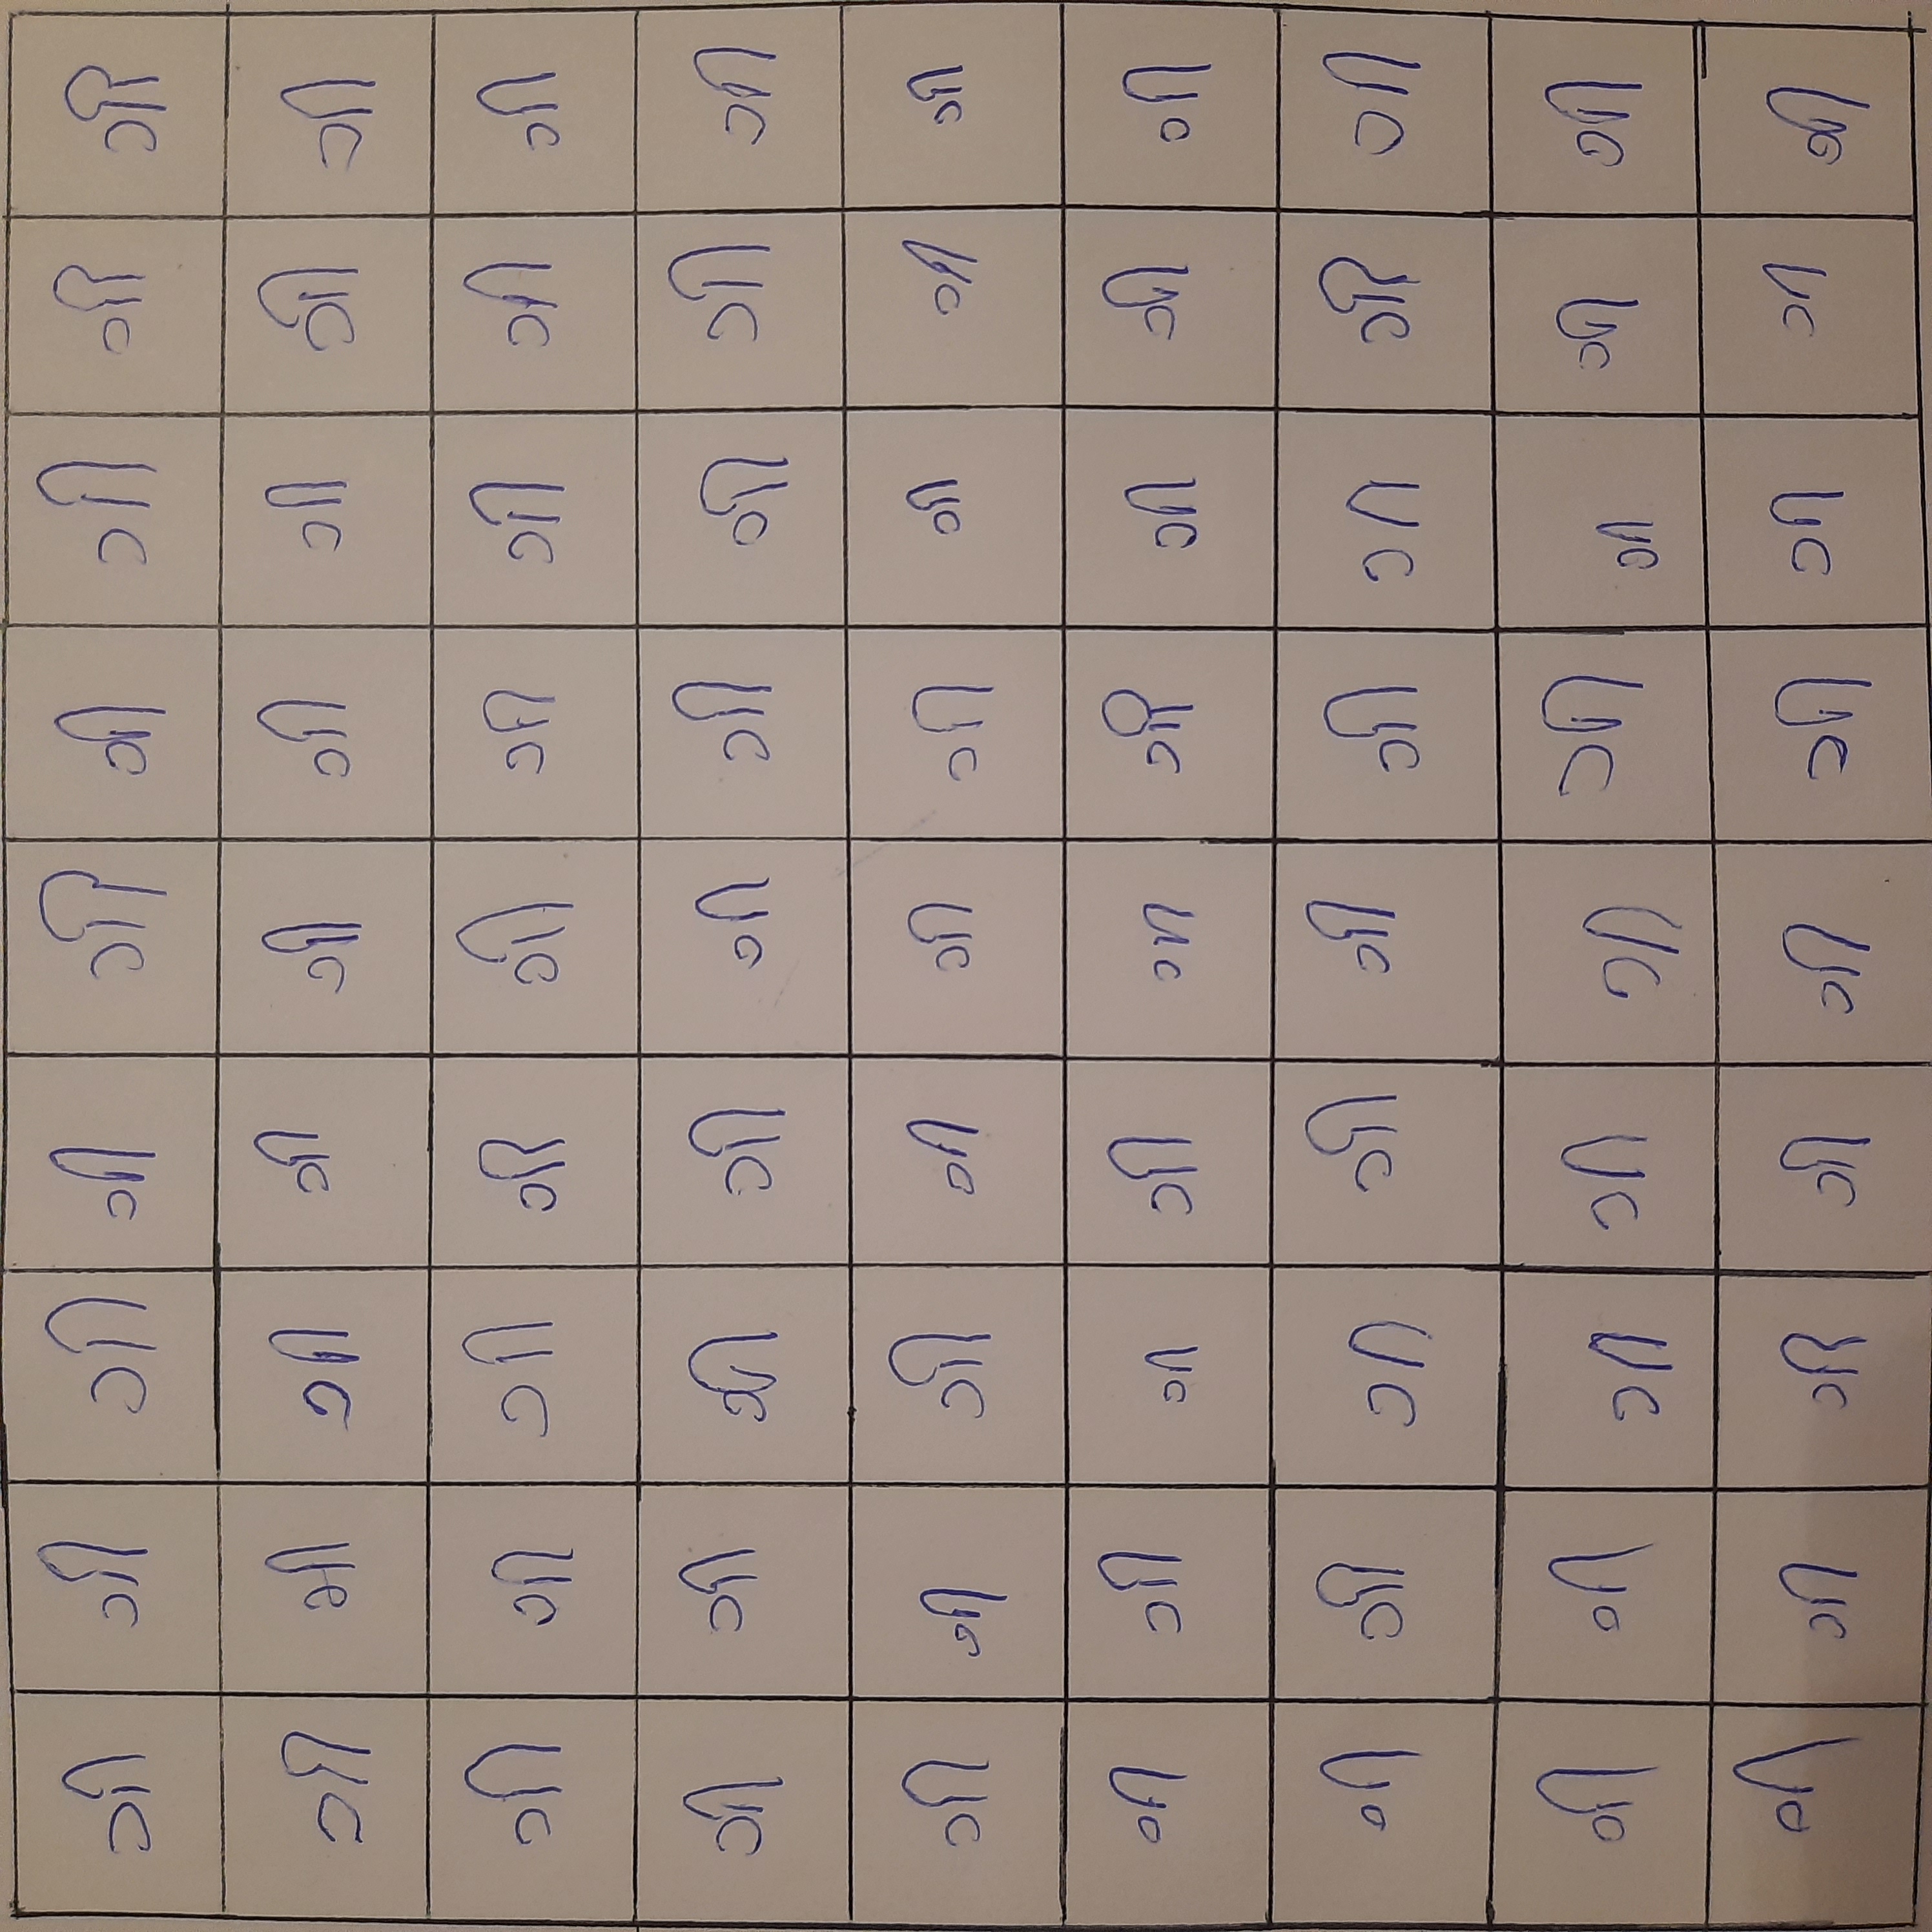 ગી ગી ગી ગી ગી ગી ગી ગી ગી
ગી ગી ગી ગી ગી ગી ગી ગી ગી
ગી ગી ગી ગી ગી ગી ગી ગી ગી
ગી ગી ગી ગી ગી ગી ગી ગી ગી
ગી ગી ગી ગી ગી ગી ગી ગી ગી
ગી ગી ગી ગી ગી ગી ગી ગી ગી
ગી ગી ગી ગી ગી ગી ગી ગી ગી
ગી ગી ગી ગી ગી ગી ગી ગી ગી
ગી ગી ગી ગી ગી ગી ગી ગી ગી